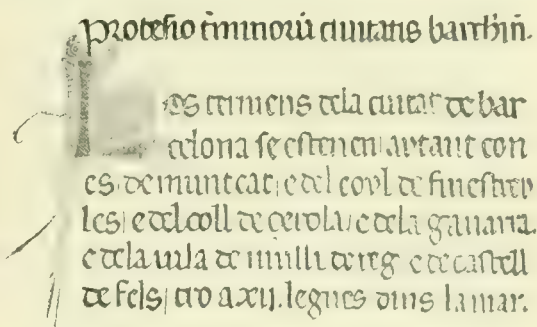 Protesio t̄minorū ciuitatis barchiñ.
Los termens dela ciutat de bar
celona se estenen aytant con
es. de muntcat; e del coyl de finestreyles; e del coll de cerola; e dela gauarra.
e dela uila de mulli de reg e de castell
de fels; tro a xij. legues dins la mar.